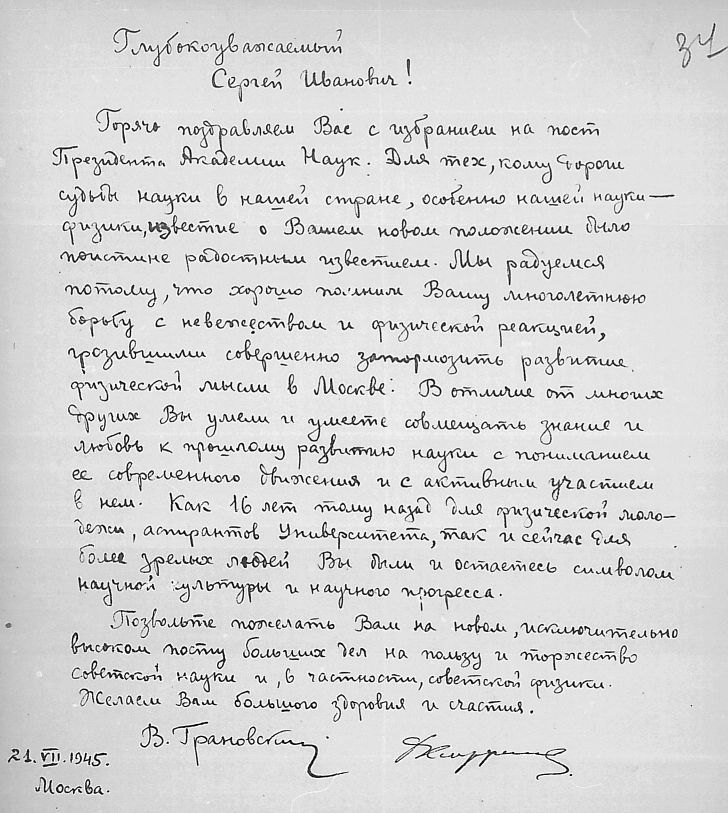 34
Глубокоуважаемый
Сергей Иванович!
Горячо поздравляем Вас с избранием на пост
Президента Академии Наук. Для тех, кому дороги
судьбы науки в нашей стране, особенно нашей науки —
физики, известие о Вашем новом положении было
поистине радостным известием. Мы радуемся
потому, что хорошо помним Вашу многолетнюю
борьбу с невежеством и физической реакцией,
грозившими совершенно затормозить развитие
физической мысли в Москве. В отличие от многих
других Вы умели и умеете совмещать знание и
любовь к прошлому развитию науки с пониманием
ее современного движения и с активным участием
в нем. Как 16 лет тому назад для физической моло-
дежи, аспирантов Университета, так и сейчас для
более зрелых людей Вы были и остаетесь символом
научной культуры и научного прогресса.
Позвольте пожелать Вам на новом, исключительно
высоком посту больших дел на пользу и торжество
советской науки и, в частности, советской физики.
Желаем Вам большого здоровия и счастия.
В. Грановский
21.VII.1945.
Москва.